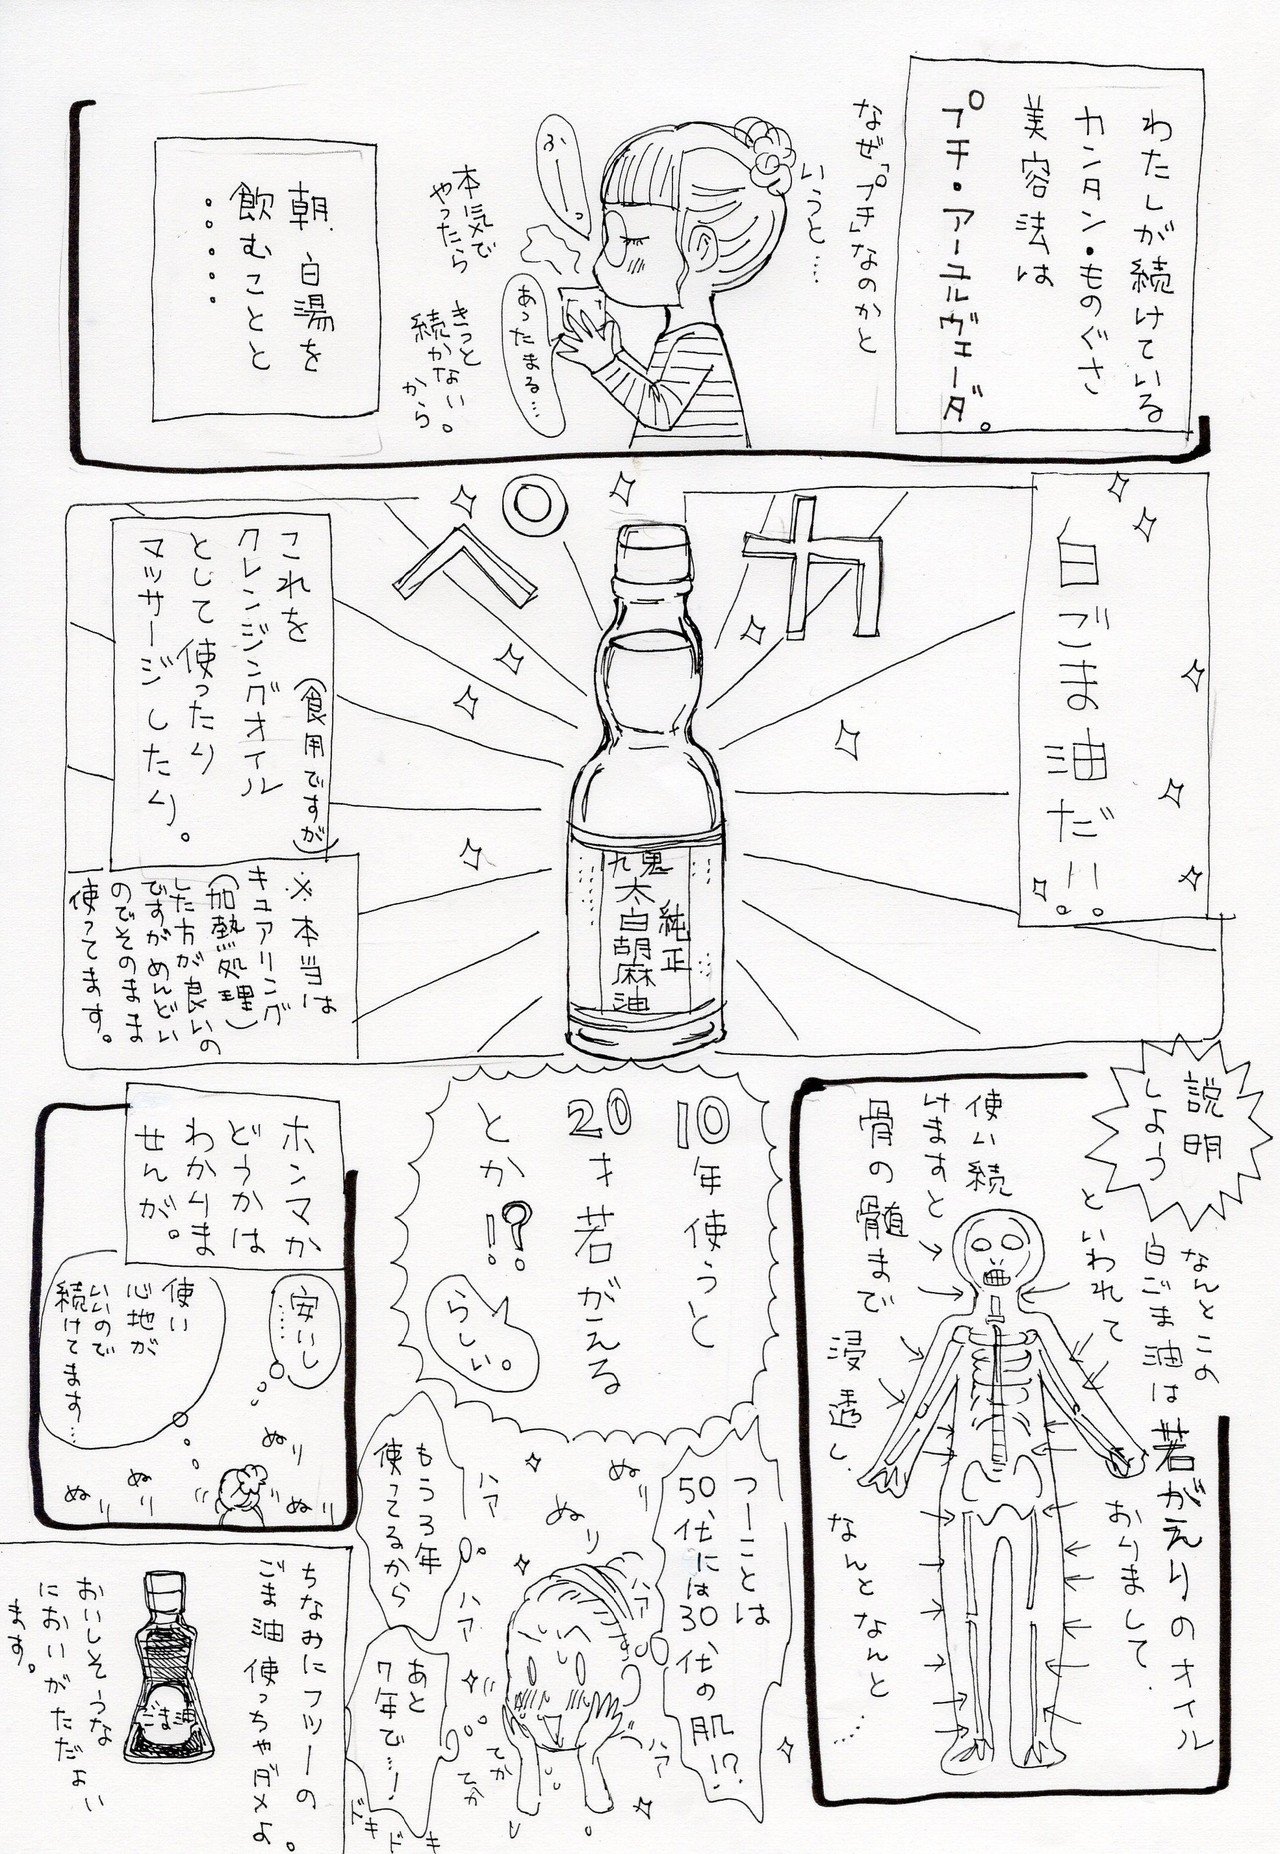 わたしが続けている
カンタン・ものぐさ
美容法は
プチ・アーユルヴェーダ。
なぜ「プチ」なのかと
いうと…
ふーーっ
あったまる…
本気で
やったら
きっと
続かない。
から
朝、白湯を
飲むことと
・・・・・
白ごま油だ!!
カ
ペ
九鬼
純正
太白胡麻油
これを
(食用ですが)
クレンジングオイル
として使ったり
マッサージしたり。
※本当は
キュアリング
(加熱処理)
した方が良いの
ですがめんどい
のでそのまま
使ってます。
説明
しよう
なんとこの
白ごま油は若がえりのオイル
といわれて
おりまして、
使い続
けますと
骨の髄まで
浸透し、
なんとなんと
……
10年使うと
20才若がえる
とか!?
らしい。
つーことは
50代には30代の肌!?
ぬり
ぬり
ハア
ハア
ハア
ハア
てか
てか
もう3年
使ってるから
あと
7年で…!
ドキドキ
ホンマか
どうかは
わかりま
せんが。
安いし
……
使い
心地が
いいので
続けてます…
ぬり
ぬり
ぬり
ぬり
ちなみにフツーの
ごま油使っちゃダメよ。
ごま油
おいしそうな
においがただよい
ます。